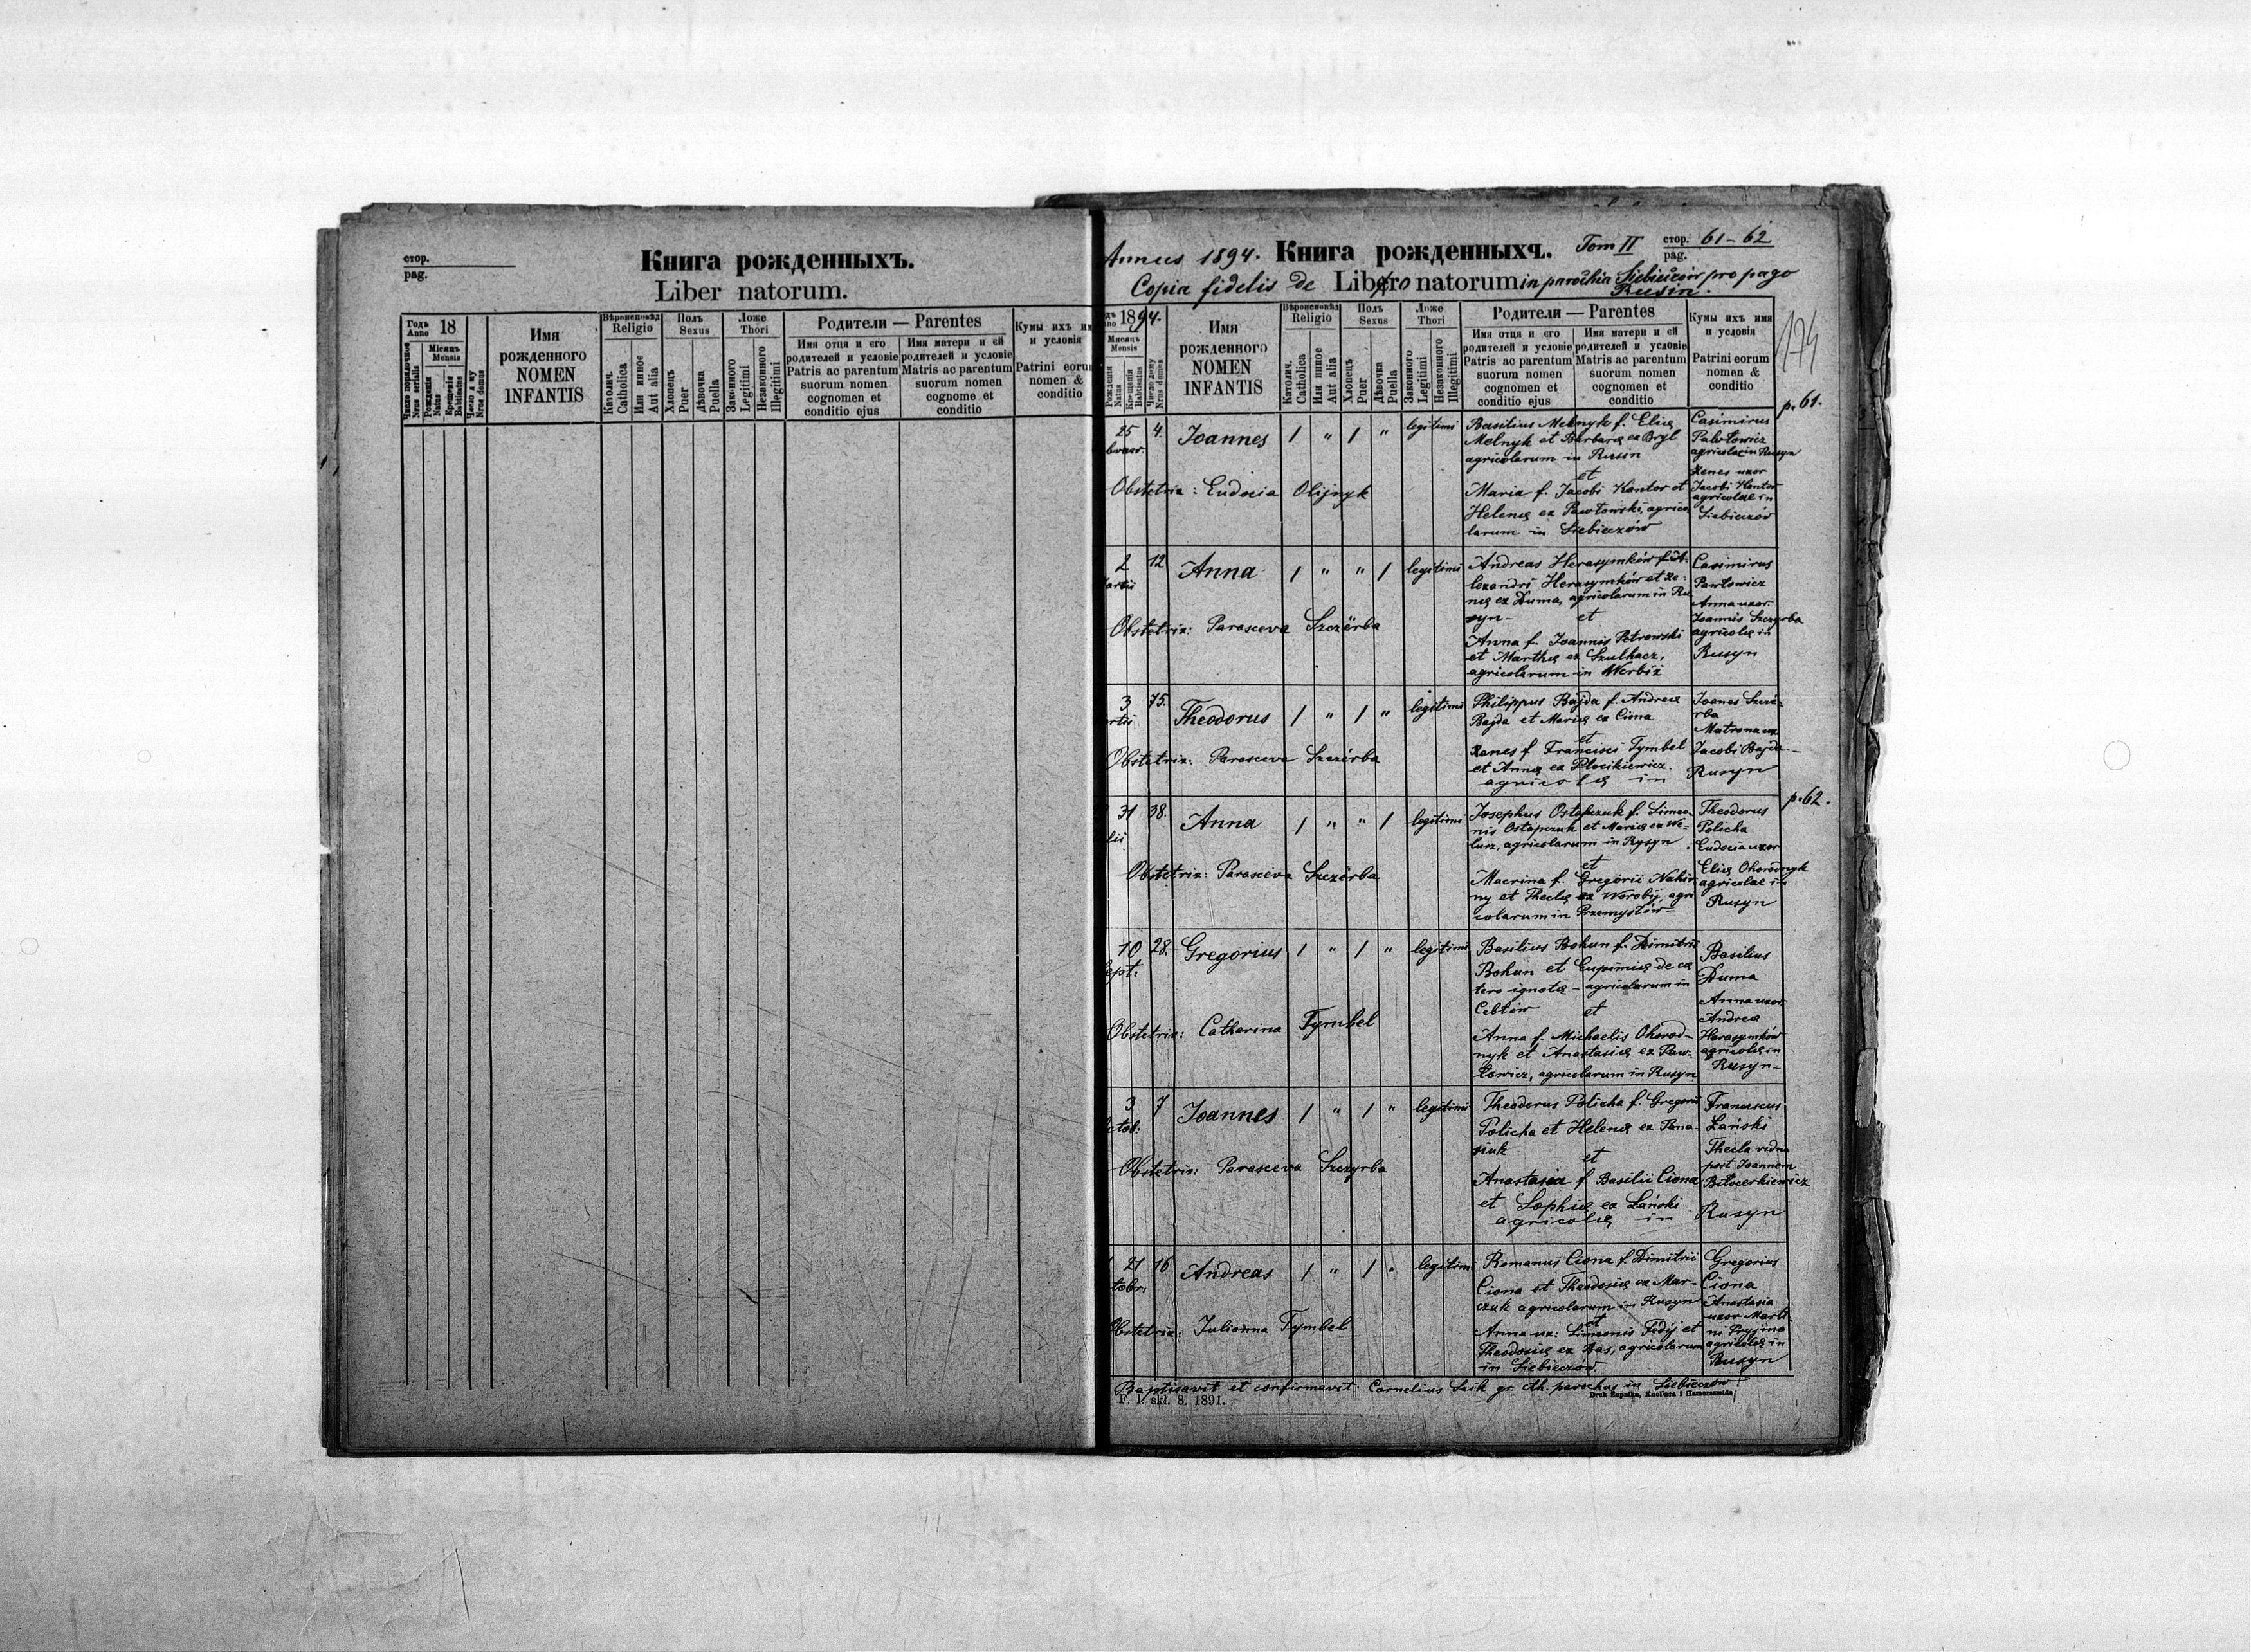 стор.
pag.
Книга рожденныхъ.
Liber natorum.
Годъ Anno 18
Число порядковое Nrus serialis
Місяць Mensis
Рожденія Natus
Крещенія Batisatus
Число дому Nrus domus
Имя рожденного
NOMEN
INFANTIS
Вѣроисповѣд
Religio
Католич. Catholica
Или инное Aut alia
Полъ
Sexus
Хлопецъ Puer
Дѣвочка Puella
Ложе
Thori
Законного Legitimi
Незаконного Illegitimi
Родители — Parentes
Имя отця и его
родителей и условіе
Patris ac parentum
suorum nomen
cognomen et
conditio ejus
Имя матери и ей
родителей и условіе
Matris ac parentum
suorum nomen
cognome et
conditio
Кумы ихъ им
и условія
Patrini eoru
nomen &
conditio
Annus 1894. Книга рожденныхъ. Tom II стор. pag. 61-62
Copia fidelis de Libro natorum in parochia Siebieczów pro pago
Rusin.
174
1894.
Мисяць
Mensis
Рожденія Natus
Крещенія Batisatus
Число дому Nrus domus
Имя
рожденного
NOMEN
INFANTIS
Вѣроисповѣд
Religio
Католич. Catholica
Или инное Aut alia
Полъ
Sexus
Хлопецъ Puer
Дѣвочка Puella
Ложе
Thori
Законного Legitimi
Незаконного Illegitimi
Родители — Parentes
Имя отця и его
родителей и условіе
Patris ac parentum
suorum nomen
cognomen et
conditio ejus
Имя матери и ей
родителей и условіе
Matris ac parentum
suorum nomen
cognomen et
conditio
Кумы ихъ имя
и условія
Patrini eorum
nomen &
conditio
p. 61.
25 4. Joannes / " / " legitimi
Basilius Melnyk f. Eliæ
Melnyk et Barbaræ ex Bryl
agricolarum in Rusin
et
Maria f. Jacobi Kantor et
Helenæ ex Pawłowski, agrico
larum in Siebieczów
Casimirus
Pawłowicz
agricola in Rusyn
Xenes uxor
Jacobi Kantor
agricolae in
Siebieczów
Obstetrix: Eudocia Olijnyk
2 12 Anna / " " / legitimi
Andreas Herasymków f. A-
lexandri Herasymków et Xe-
niæ ex Duma, agricolarum in Ru
syn- et
Anna f. Joannis Petrowski
et Marthæ ex Szulhacz,
agricolarum in Werbiż
Casimirus
Pawłowicz
Anna uxor
Joannis Szczyrba
agricolæ in
Rusyn
Obstetrix: Parasceva Szczérba
3 75. Theodorus / " / " legitimi
Philippus Bajda f. Andreæ
Bajda et Mariæ ex Ciona
et
Xenes f. Francisci Tymbel
et Annæ ex Płocikiewicz.
agricolæ in
Joanes Szczé-
rba
Matrona ux
Jacobi Bajda-
Rusyn
Obstetrix: Parasceva Szczérba
p. 62.
31 38. Anna / " " / legitimi
Josephus Ostapczuk f. Simeo-
nis Ostapczuk et Mariæ ex We-
lurz, agricolarum in Rysyn
et
Macrina f. Gregorii Nahir
ny et Theclæ ex Worobij, agri
colarum in Przemysłów-
Theodorus
Policha
Eudocia uxor
Eliæ Ohorodnyk
agricolae in
Rusyn
Obstetrix: Parasceva Szczérba
10 28. Gregorius / " / " legitimi
Basilius Bohun f. Dimitrii
Bohun et Eupimiæ de ca
tero ignotæ - agricolarum in
Cebłów et
Anna f. Michaelis Ohorod-
nyk et Anastasiæ ex Paw-
łowicz, agricolarum in Rusyn
Basilius
Duma
Anna uxor
Andreæ
Herasymków
agricolæ in
Rusyn-
Obstetrix: Catharina Tymbel
3 7 Joannes / " / " legitimi
Theodorus Policha f. Gregorii
Policha et Helenæ ex Pana-
siuk et
Anastasia f. Basilii Ciona
et Sophiæ ex Łański
agricolæ in
Franciscus
Łański
Thecla vidua
post Joannem
Biłocerkiewicz
Rusyn
Obstetrix: Parasceva Szczyrba
21 16 Andreas / " / " legitimi
Romanus Ciona f. Dimitrii
Ciona et Theodosiæ ex Mar-
czuk agricolarum in Rusyn
et
Anna ux: Simeonis Fedij et
Theodosiæ ex Bas, agricolarum
in Siebieczów.
Gregorius
Ciona
Anastasia
uxor Marti
ni Pryjma
agricolæ in
Rusyn
Obstetrix: Julianna Tymbel
Baptisavit et confirmavit: Cornelius gr. cth. parochus in Siebieczów
F. 1. skł. 8. 1891.
Druk Żupnika, Knollera i Hamerszmida